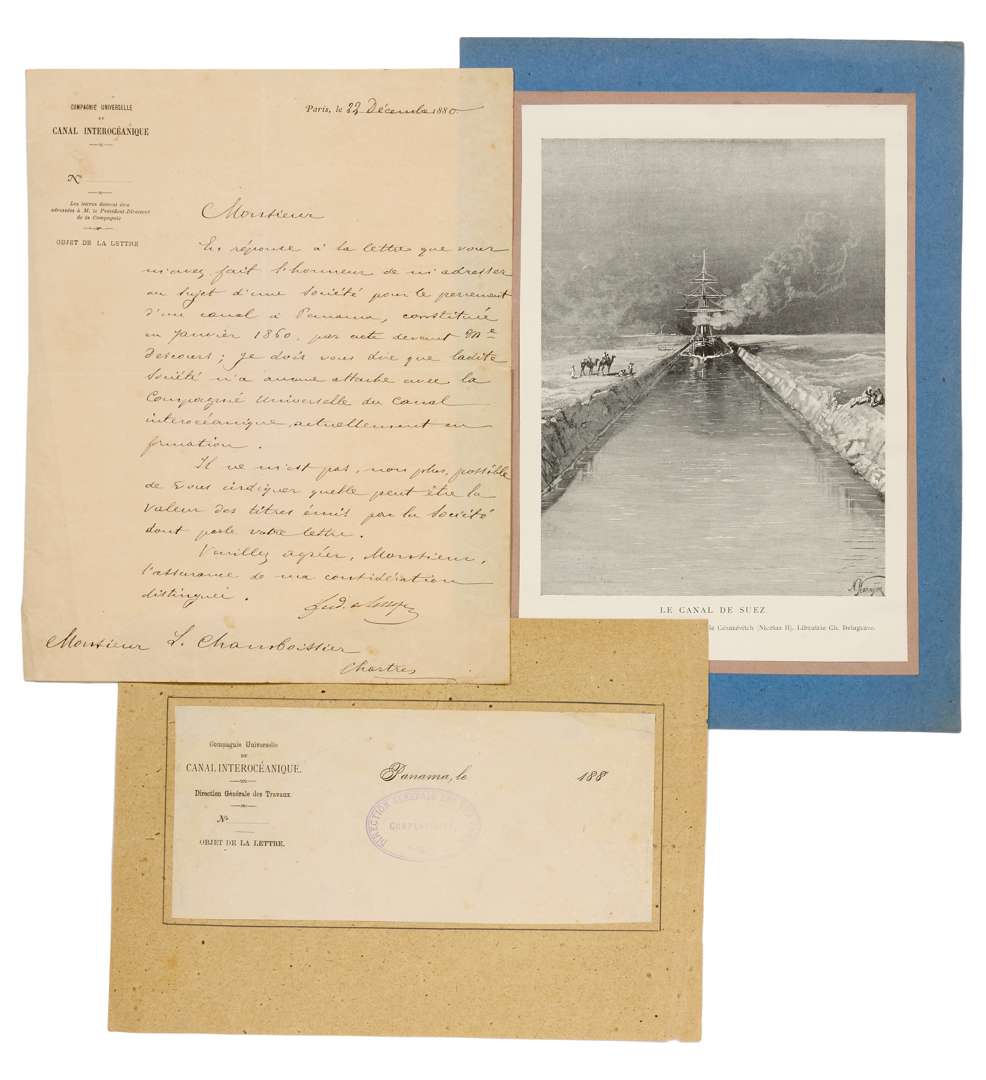 COMPAGNIE UNIVERSELLE
DU
CANAL INTEROCÉANIQUE
N°
Les lettres doivent être
adressées à M. le Président-Directeur
de la Compagnie
OBJET DE LA LETTRE
Paris, le 22 Décembre 1880
Monsieur
En réponse à la lettre que vous
m'avez fait l'honneur de m'adresser
au sujet d'une Société pour le percement
d'un canal à Panama, constituée
en Janvier 1860, par acte devant Me
Descours ; je dois vous dire que ladite
Société n'a aucune attache avec la
Compagnie Universelle du Canal
interocéanique, actuellement en
formation.
Il ne m'est pas, non plus, possible
de vous indiquer quelle peut être la
valeur des titres émis par la Société
dont parle votre lettre.
Veuillez agréer, Monsieur,
l'assurance de ma considération
distinguée.
Ferd. de Lesseps
Monsieur L. Chamboissier
Chartres
LE CANAL DE SUEZ
Césarévitch (Nicolas II). Librairie Ch. Delagrave.
Compagnie Universelle
DU
CANAL INTEROCÉANIQUE.
Direction Générale des Travaux.
N°
OBJET DE LA LETTRE.
Panama, le 188
DIRECTION GÉNÉRALE DES